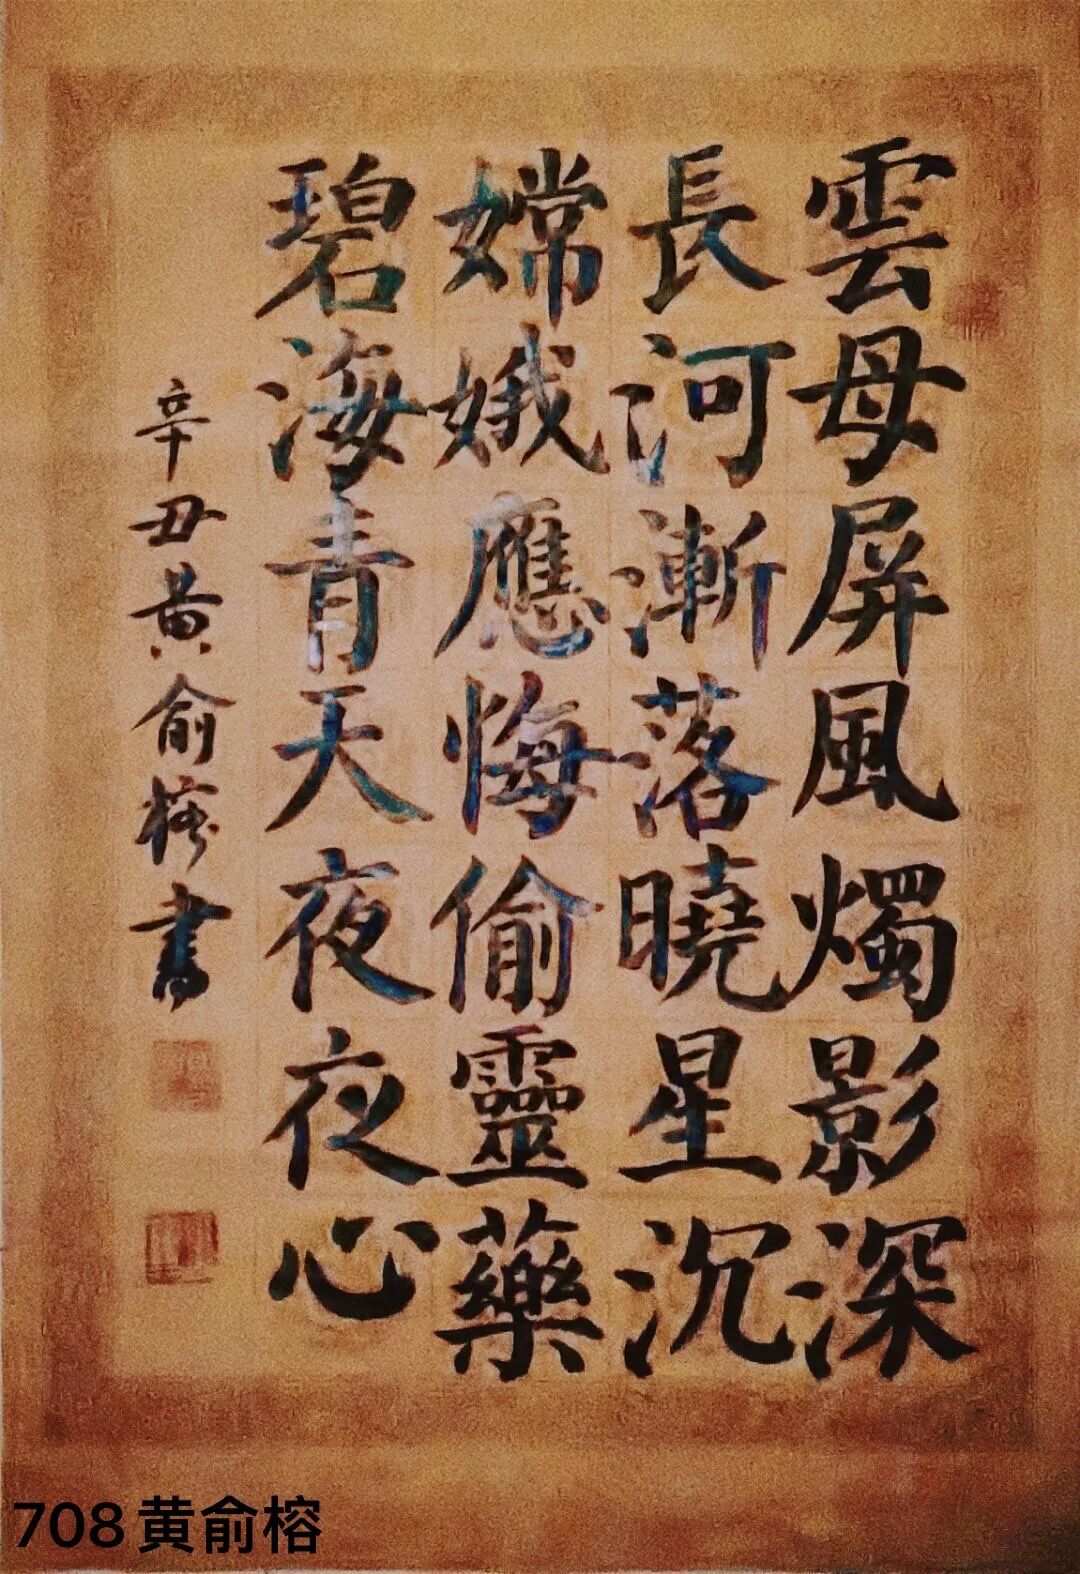 雲母屏風燭影深
長河漸落曉星沉
嫦娥應悔偷靈藥
碧海青天夜夜心
辛丑黄俞榕書
708 黄俞榕